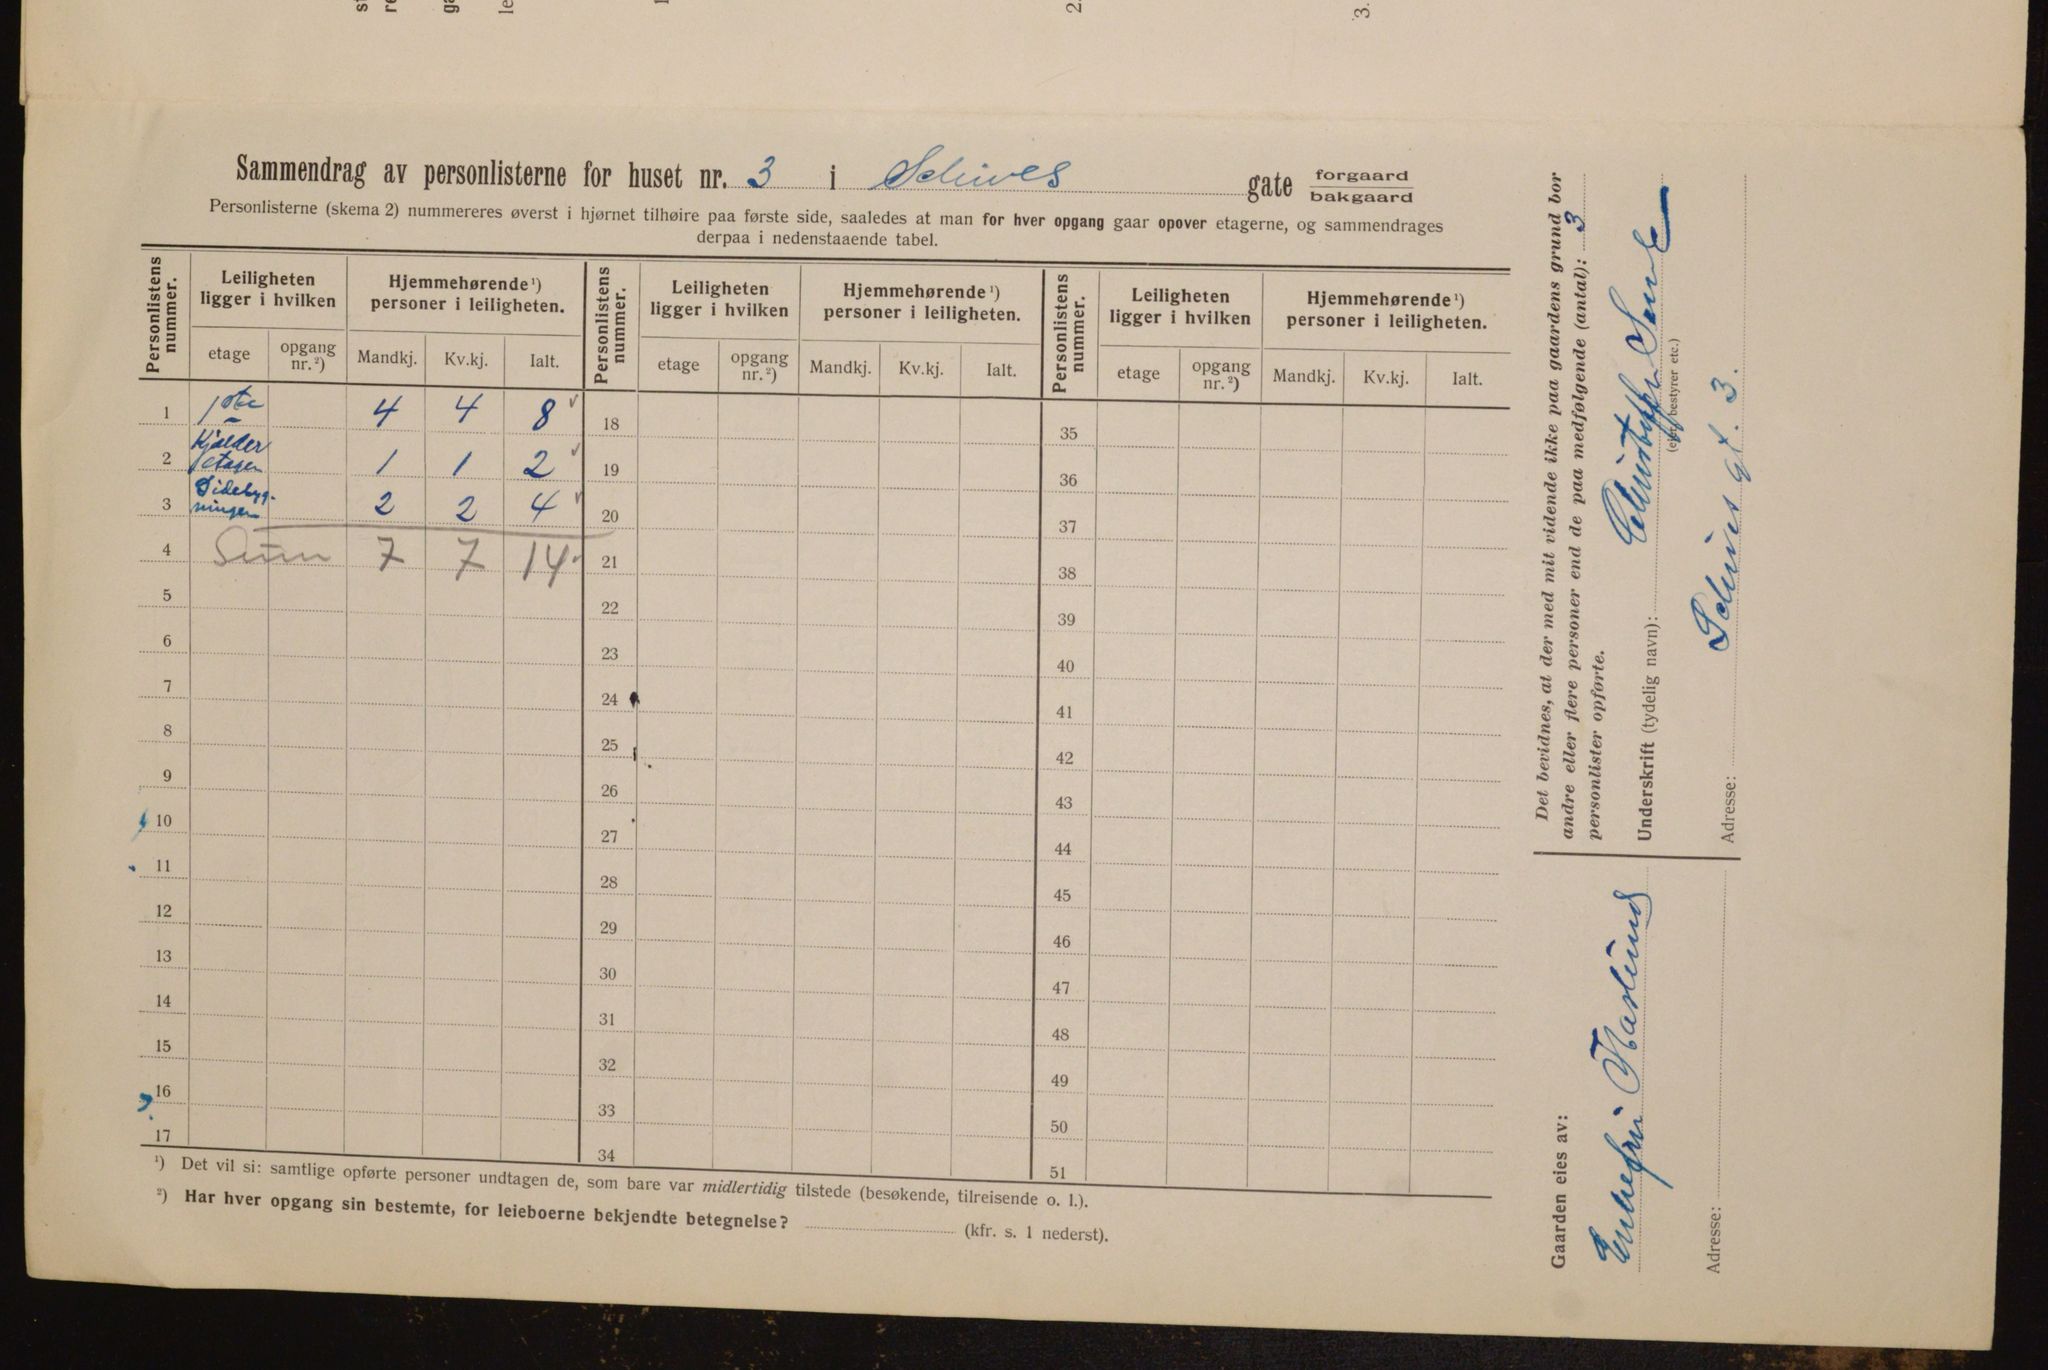 2.
3.
Sammendrag av personlisterne for huset nr. 3 i Schives gate forgaard
bakgaard
Personlisterne (skema 2) nummereres øverst i hjørnet tilhøire paa første side, saaledes at man for hver opgang gaar opover etagerne, og sammendrages
derpaa i nedenstaaende tabel.
Personlistens nummer. Leiligheten ligger i hvilken Hjemmehørende ¹) personer i leiligheten. Personlistens nummer. Leiligheten ligger i hvilken Hjemmehørende ¹) personer i leiligheten. Personlistens nummer. Leiligheten ligger i hvilken Hjemmehørende ¹) personer i leiligheten.
etage opgang nr. ²) Mandkj. Kv.kj. Ialt. etage opgang nr. ²) Mandkj. Kv.kj. Ialt. etage opgang nr. ²) Mandkj. Kv.kj. Ialt.
1 1ste 4 4 8 18 35
2 Kjælder etagen 1 1 2 19 36
3 Sidebyg-ningen 2 2 4 20 37
4 Sum 7 7 14 21 38
5 22 39
6 23 40
7 24 41
8 25 42
9 26 43
10 27 44
11 28 45
12 29 46
13 30 47
14 31 48
15 32 49
16 33 50
17 34 51
¹) Det vil si: samtlige opførte personer undtagen de, som bare var midlertidig tilstede (besøkende, tilreisende o. l.).
²) Har hver opgang sin bestemte, for leieboerne bekjendte betegnelse? (kfr. s. 1 nederst).
Det bevidnes, at der med mit vidende ikke paa gaardens grund bor
andre eller flere personer end de paa medfølgende (antal): 3
personlister opførte.
Underskrift (tydelig navn):
(eier, bestyrer etc.)
Adresse: Schives gt. 3.
Gaarden eies av:
Enkefru
Adresse: